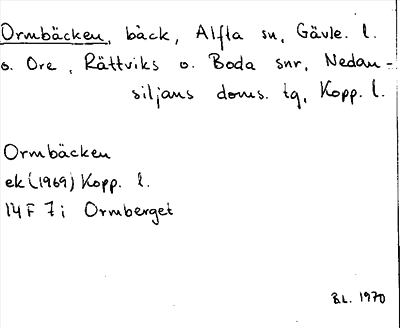 Ormbäcken, bäck, Alfta sn, Gävle. l.
o. Ore, Rättviks o. Boda snr, Nedan-
siljans doms. tg, Kopp. l.
Ormbäcken
ek (1969) Kopp. l.
14 F 7 i Ormberget
B.L. 1970